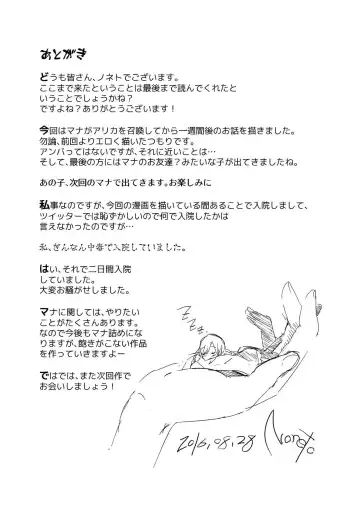 あとがき
どうも皆さん、ノネトでございます。
ここまで来たということは最後まで読んでくれたと
いうことでしょうかね?
ですよね?ありがとうございます!
今回はマナがアリカを召喚してから一週間後のお話を描きました。
勿論、前回よりエロく描いたつもりです。
アンバってはないですが、それに近いことは…
そして、最後の方にはマナのお友達?みたいな子が出てきましたね。
あの子、次回のマナで出てきます。お楽しみに
私事なのですが、今回の漫画を描いている間あることで入院しまして、
ツイッターでは恥ずかしいので何で入院したかは
言えなかったのですが…
私、ぎんなん中毒で入院していました。
はい、それで二日間入院
していました。
大変お騒がせしました。
マナに関しては、やりたい
ことがたくさんあります。
なので今後もマナ詰めにな
りますが、飽きがこない作品
を作っていきますよー
ではでは、また次回作で
お会いしましょう!
2016.08.28